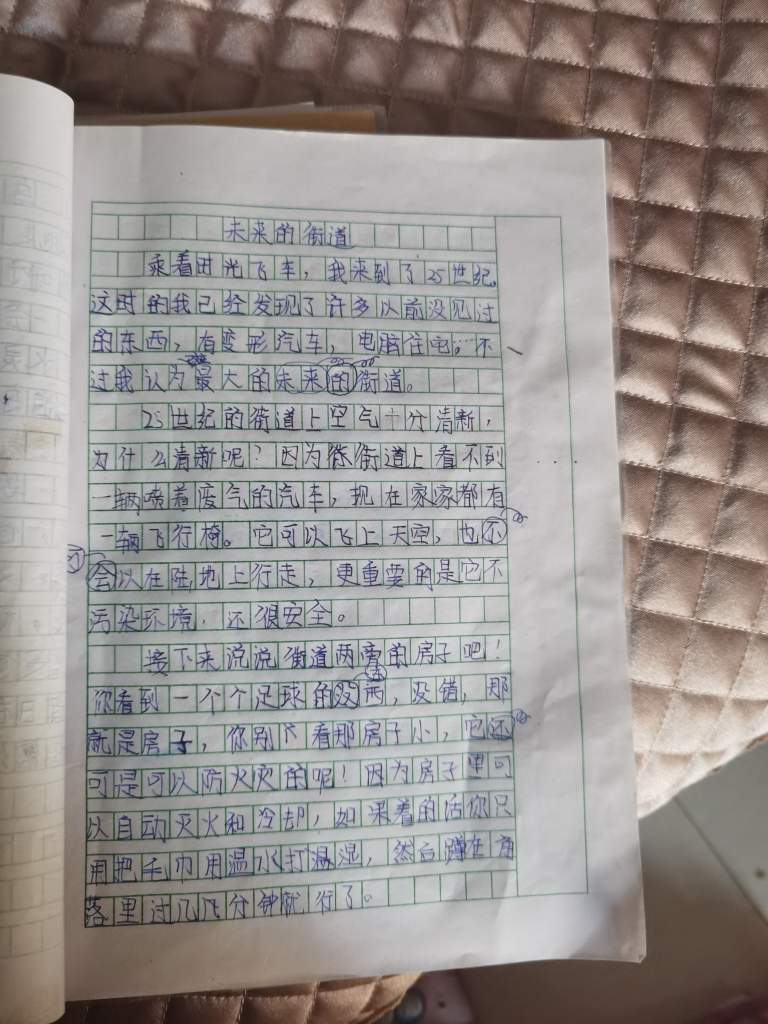 未来的街道
乘着时光飞车，我来到了25世纪。
这时的我已经发现了许多以前没见过
的东西，有变形汽车，电脑住宅，不
过我认为最大的未来的街道。
25世纪的街道上空气十分清新，
为什么清新呢？因为街道上看不到
一辆喷着废气的汽车，现在家家都有
一辆飞行椅。它可以飞上天空，也不
可
会以在陆地上行走，更重要的是它不
污染环境，还很安全。
接下来说说街道两旁的房子吧！
你看到一个个足球的没西，没错，那
就是房子，你别个看那房子小，它还
可是可以防火灾的呢！因为房子里可
以自动灭火和冷却，如果着的话你只
用把毛巾用温水打湿，然后蹲在角
落里过几分钟就行了。